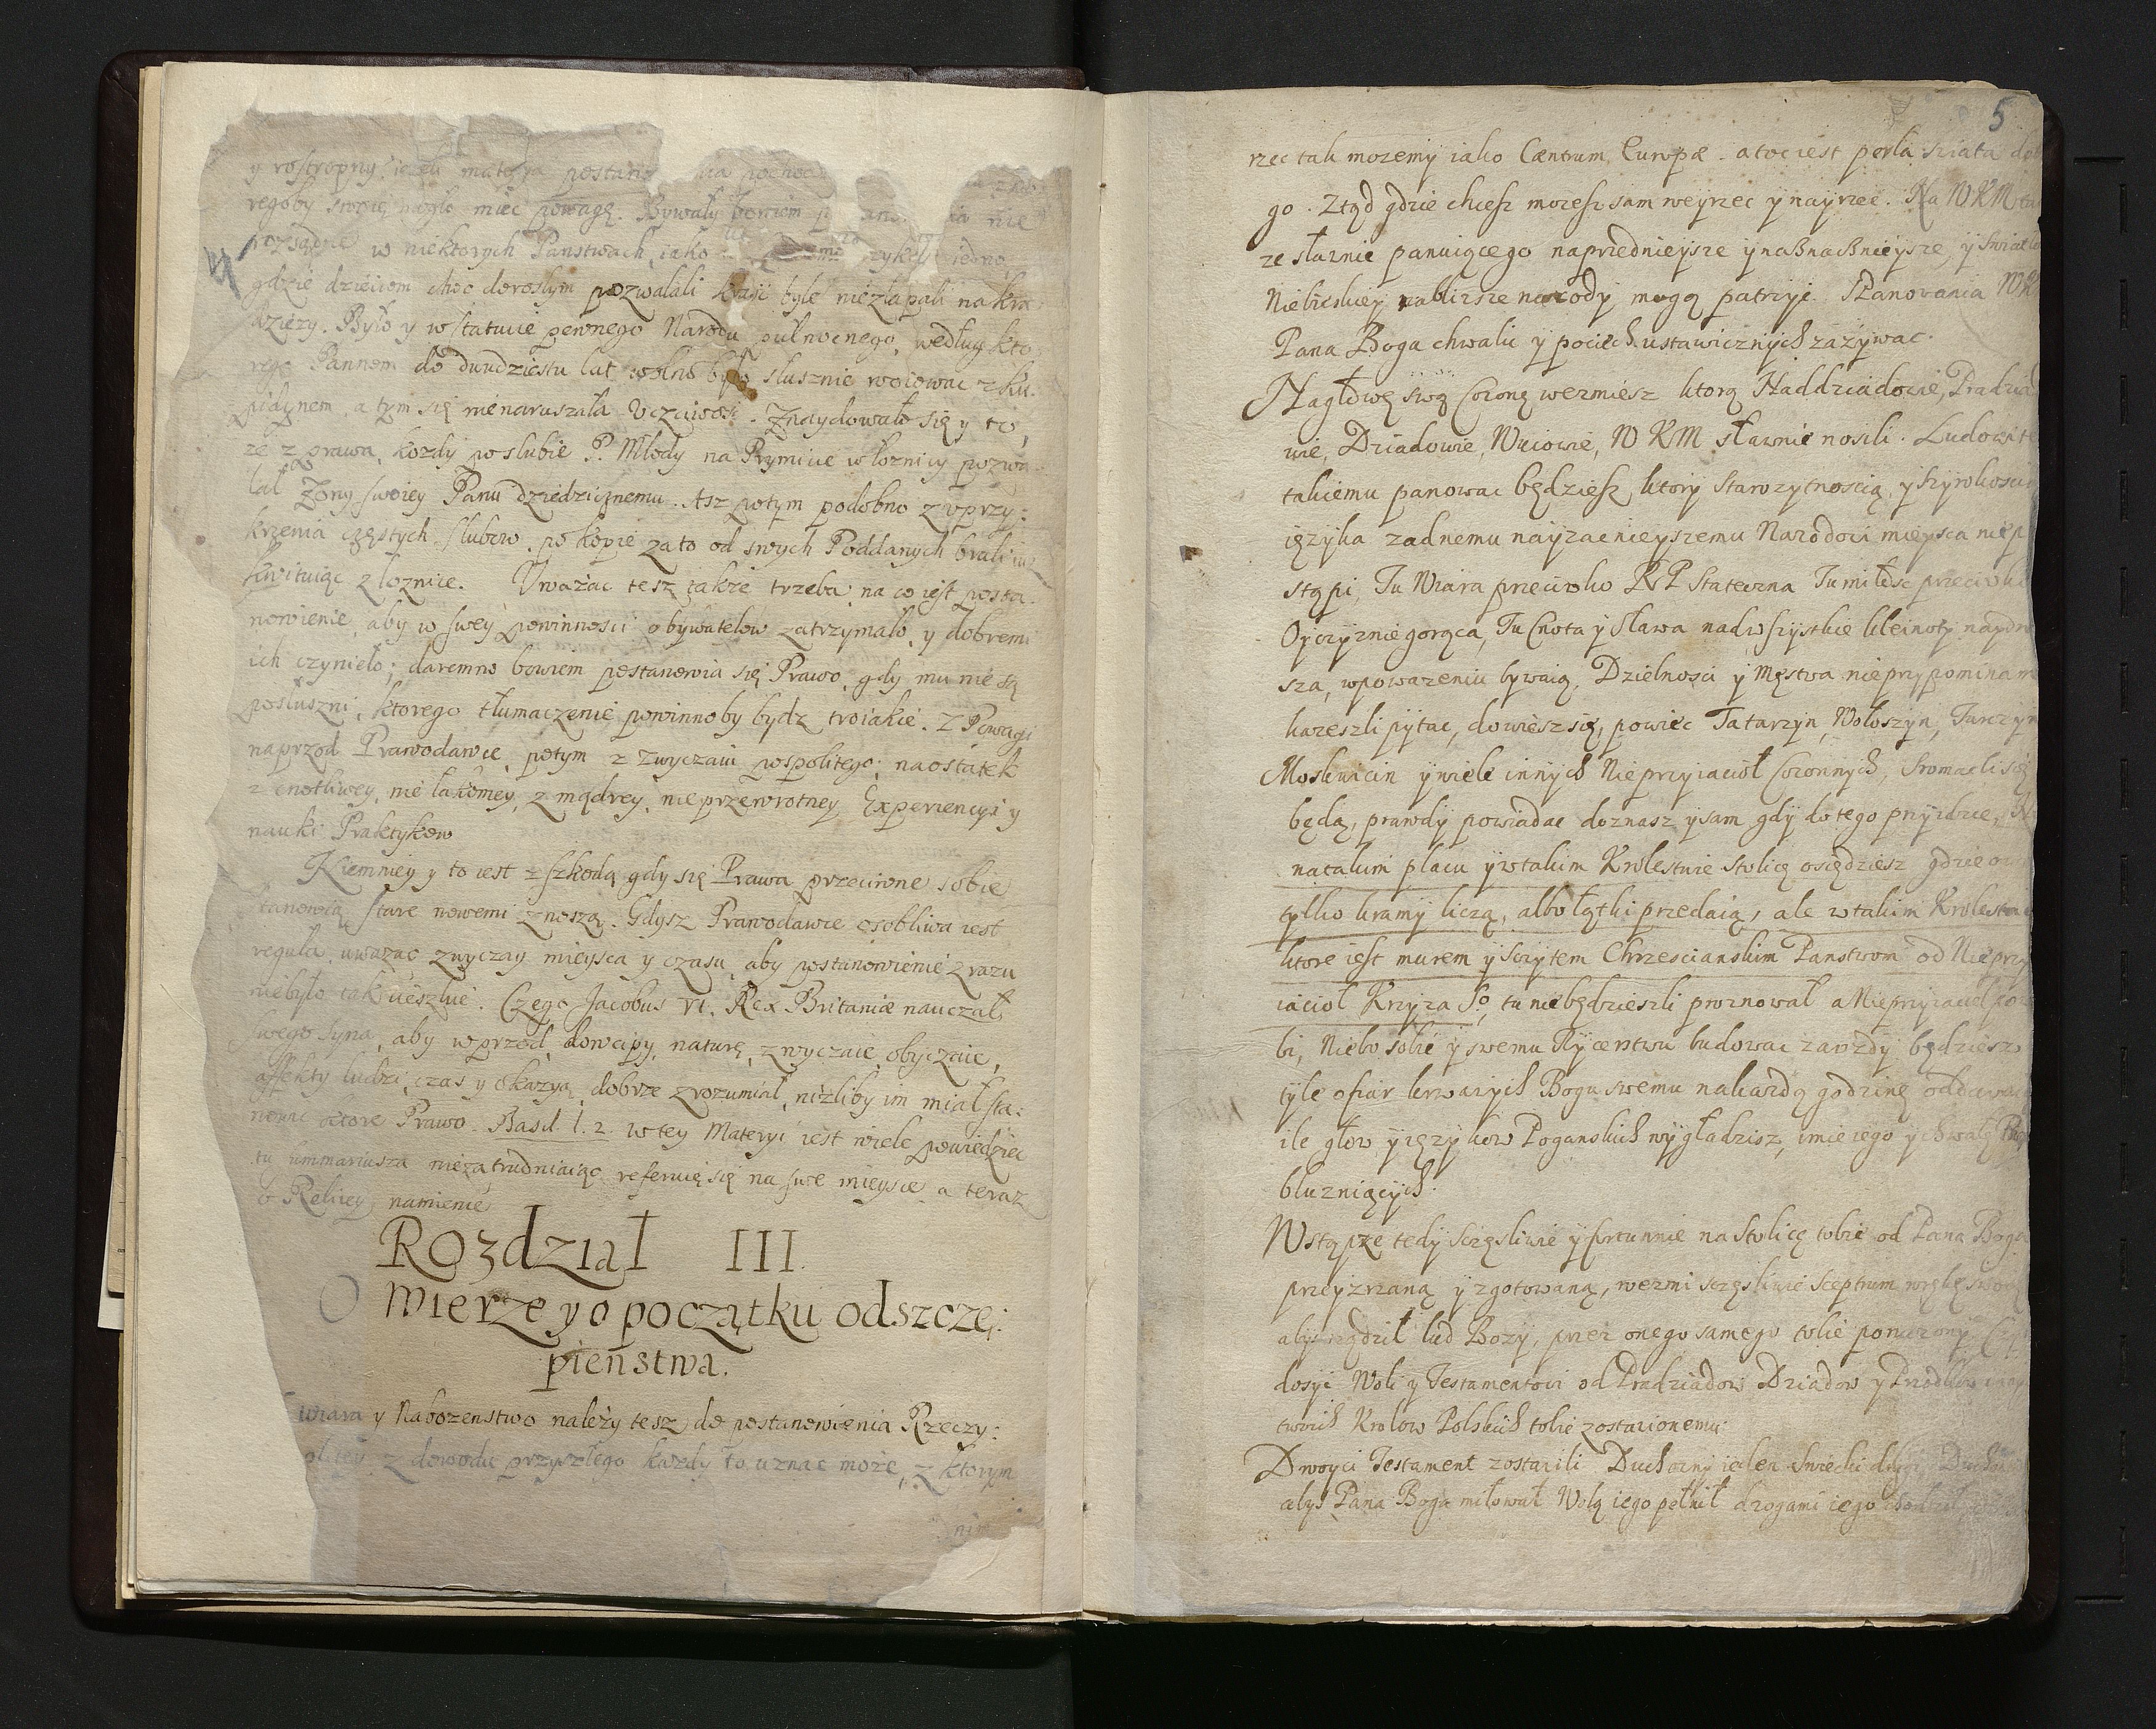 y rostropny, ieżeli materya postano
regoby swoię mogło miec powagę. Bywały bowiem nie
rozsądne w niektorych Panstwach, iako
gdzie dzieciom choc dorosłym pozwalali krasc byle niezłapali na kra
dzieży. Było y w statucie pewnego Narodu pułnocnego, według kto
rego Pannom do dwudziestu lat wolno było slusznie woiowac z Ku
pidynem, a tym się nienaruszała Uczciwosc. Znaydowało się y to,
że z prawa, kozdy po slubie P. Młody na Prymicie w łoznicy pozwa
lał Zony swoiey Panu dziedzicznemu. Asz potym podobno z uprzy:
krzenia częstych slubow, po kopie za to od swych Poddanych brali iuz
kwituiąc z łoznice. Uważac tesz także trzeba na co iest posta
nowienie, aby w swey powinnosci obywatelow zatrzymało, y dobremi
ich czynieło; daremno bowiem postanowia się Prawo, gdy mu nie są
posłuszni, ktorego tłumaczenie powinnoby bydz troiakie. Z Powagi
naprzod Prawodawce, potym z zwyczaiu pospolitego, naostatek
z cnotliwey, nie łakomey, z mądrey, nie przewrotney Experiencyi y
nauki Praktykow
Niemniey y to iest z szkodą gdy się Prawa przeciwne sobie
stanowią stare nowemi znoszą. Gdysz Prawodawce osobliwa iest
reguła, uwazac zwyczay mieysca y czasu, aby postanowienie z razu
niebyło tak ucieszne. Czego Jacobus VI. Rex Britaniæ nauczał
swego syna, aby wprzod dowcipy, naturę, zwyczaie, obyczaie,
affekty ludzi, czas y okazyą dobrze zrozumiał, niżliby im miał sta:
nowic ktore Prawo. Basil. l. 2. w tey Materyi iest wiele powiedziec
tu summariusza niezatrudniaiąc referuię się na swe mieysce a teraz
o Reliiey namienie
Rozdział III.
O Wierze y o początku odszcze:
pienstwa.
Wiara y Nabozenstwo należy tesz do postanowienia Rzeczy:
z dowodu przyszłego kazdy to uznac może, z ktorym
nim
5
rzec tak mozemy iako Cæntrum Europæ. a toc iest perła swiata
go. Ztąd gdzie chcesz mozesz sam weyrzec y nayrzec. Na WKM
ze sławnie panuiącego naprzednieysze y naßnaßnieysze, y swiat
Niebieskiey nablizsze narody mogą patrzyc. Szanowania WK
Pana Boga chwalic y pociech ustawicznych zazywac.
Na głowę swą Coronę wezmiesz ktorą Naddziadowie, Pradziad
wie, Dziadowie, Wuiowie, WKM sławnie nosili. Ludowi te
takiemu panowac będziesz ktory starozytnoscią y szyrokoscią
ięzyka zadnemu nayzacnieyszemu Narodowi mieysca nie p
stąpi, Tu Wiara przeciwko RP Stateczna Tu miłosc przeciwk
Oyczyznie gorąca, Tu Cnota y Sława nad wszystkie kleinoty naydro
sza, w powazeniu bywaią, Dzielnosci y Męstwa nieprzypominam
kazeszli pytac, dowiesz się, powiec Tatarzyn, Wołoszyn, Turczyn
Moskwicin y wiele innych Nieprzyiacioł Coronnych, Sromaeli się
będą, prawdy powiadac doznasz y sam gdy do tego przyidzie,
na takim placu y w takim Krolestwie stolicę osiędziesz gdzie
tylko kramy liczą, albo łątki przedaią, ale w takim Krolestw
ktore iest murem y sczytem Chrzescianskim Panstwom od Nieprzy
iacioł Krzyza S°, tu niebędzieszli proznował a Nieprzyiaciel
bi, Niebo sobie y swemu Rycerstwu budowac zawzdy będziesz
tyle ofiar krwawych Bogu swemu na kazdą godzinę oddawac
ile głow y ięzykow Poganskich wygładzisz, imie iego y chwałę
bluzniących.
Wstąpze tedy sczęsliwie y fortunnie na Stolicę tobie od Pana Boga
przeyzrzaną y zgotowaną, wezmi sczęsliwie Sceptrum w rękę swoię
abys rządził lud Bozy, przez onego samego tobie poruczony
dosyc Woli y Testamentowi od Pradziadow Dziadow y Przodkow
twoich Krolow Polskich tobie zostawionemu
Dwoyci Testament zostawili Duchowny ieden Swiecki drugi, Duchow
abys Pana Boga miłował Wolą iego pełnił drogami iego chodził